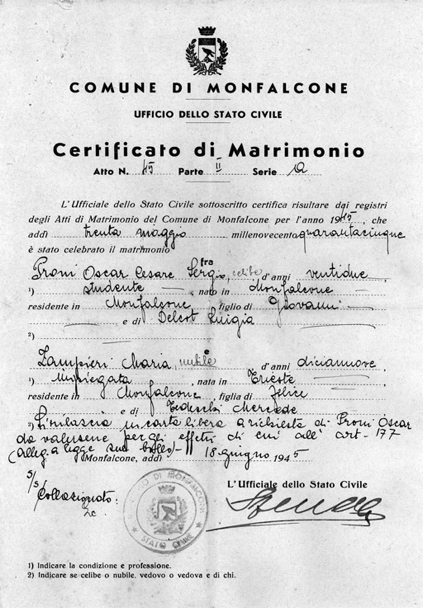 COMUNE DI MONFALCONE
UFFICIO DELLO STATO CIVILE
Certificato di Matrimonio
Atto N. 45 Parte II Serie A
L'Ufficiale dello Stato Civile sottoscritto certifica risultare dai registri
degli Atti di Matrimonio del Comune di Monfalcone per l'anno 1945, che
addì trenta maggio millenovecento quarantacinque
è stato celebrato il matrimonio
fra
Proni Oscar Cesare Sergio, celibe d'anni ventidue
1) studente, nato in Monfalcone
residente in Monfalcone figlio di Giovanni
e di Luigia
2)
Zampieri Maria, nubile d'anni diciannove
1) impiegata, nata in Trieste
residente in Monfalcone, figlia di Felice
e di Tedeschi Mercede
2) Si rilascia in carta libera a richiesta di Proni Oscar
da valersene per gli effetti di cui all'art. 177
alleg. a legge sul bollo
Monfalcone, addì 18 giugno 1945
L'Ufficiale dello Stato Civile
Collazionato:
STATO CIVILE
1) Indicare la condizione e professione.
2) Indicare se celibe o nubile, vedovo o vedova e di chi.